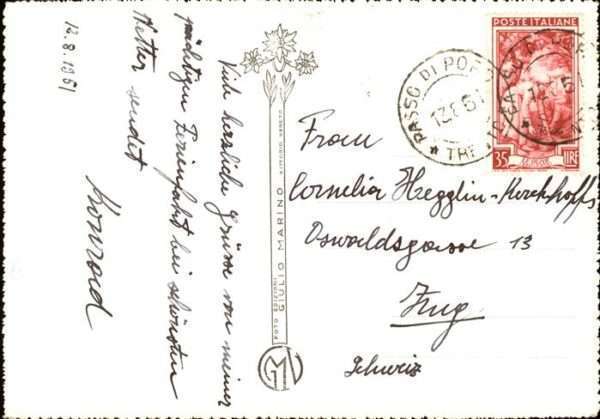 12.8.1951
Viele herzliche Grüsse von meiner
prächtigen Ferienfahrt bei schönstem
Wetter sendet
Konrad
FOTO EDIZIONI
GIULIO MARINO
POSTE ITALIANE
35 LIRE
PASSO DI POR
TRE
Frau
Cornelia Hegglin-Kerckhoffs
Oswaldsgasse 13
Zug
Schweiz